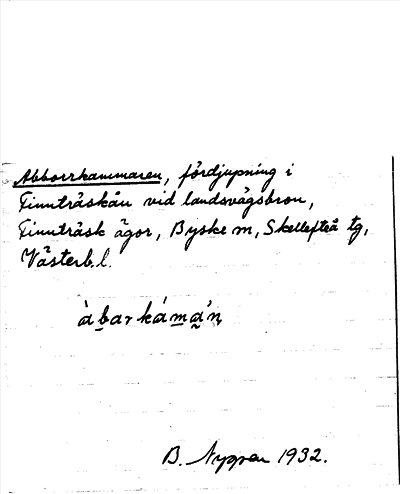 Abborrkammaren, fördjupning i
Finnträskån vid landsvägsbron,
Finnträsk ägor, Byske m, Skellefteå tg,
Västerb. l.
àb̲arkám̲a̰'n̥
B. Nygren 1932.